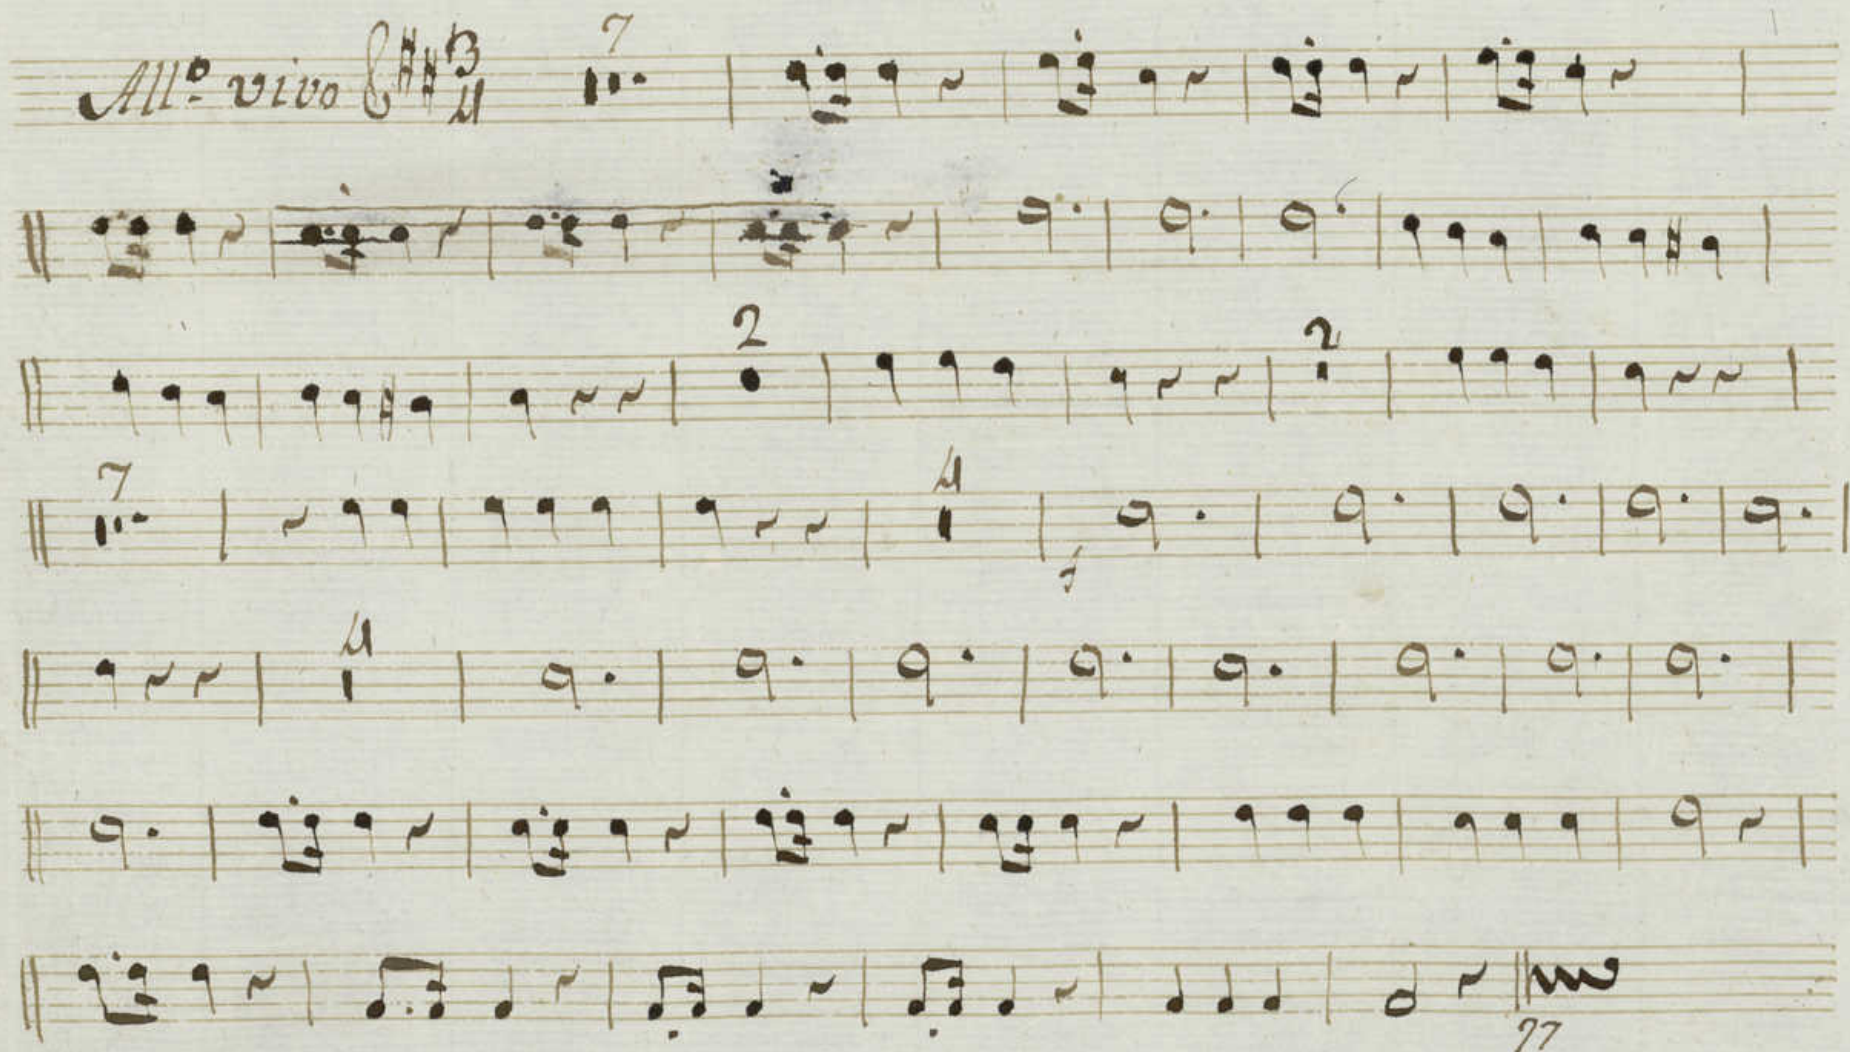 All.º vivo 3 4 7
2 2
7 4
f
4
77